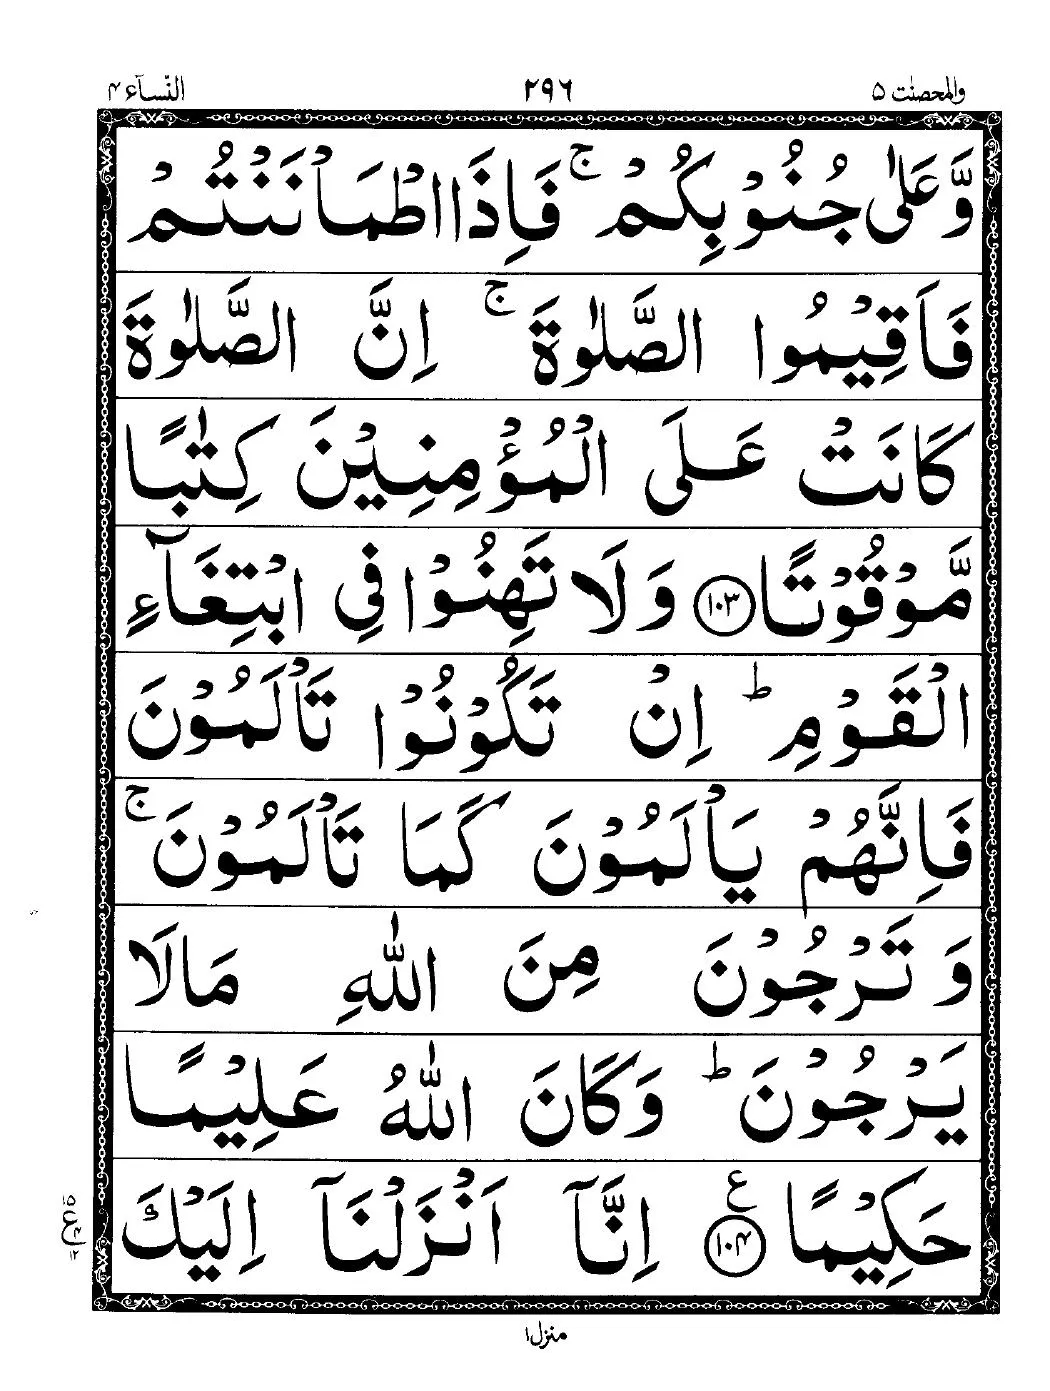 والمحصنٰت ۵ ۲۹۶ النّسآء ۴
وَّعَلٰى جُنُوْبِكُمْ ۚ فَاِذَا اطْمَاْنَنْتُمْ
فَاَقِيْمُوا الصَّلٰوةَ ۚ اِنَّ الصَّلٰوةَ
كَانَتْ عَلَى الْمُؤْمِنِيْنَ كِتٰبًا
مَّوْقُوْتًا ۝۱۰۳ وَلَا تَهِنُوْا فِي ابْتِغَآءِ
الْقَوْمِ ؕ اِنْ تَكُوْنُوْا تَاْلَمُوْنَ
فَاِنَّهُمْ يَاْلَمُوْنَ كَمَا تَاْلَمُوْنَ ۚ
وَتَرْجُوْنَ مِنَ اللّٰهِ مَالَا
يَرْجُوْنَ ؕ وَكَانَ اللّٰهُ عَلِيْمًا
حَكِيْمًا ۝۱۰۴ ع اِنَّآ اَنْزَلْنَآ اِلَيْكَ
۱۵ ع ۴ ۱۲
منزل ۱